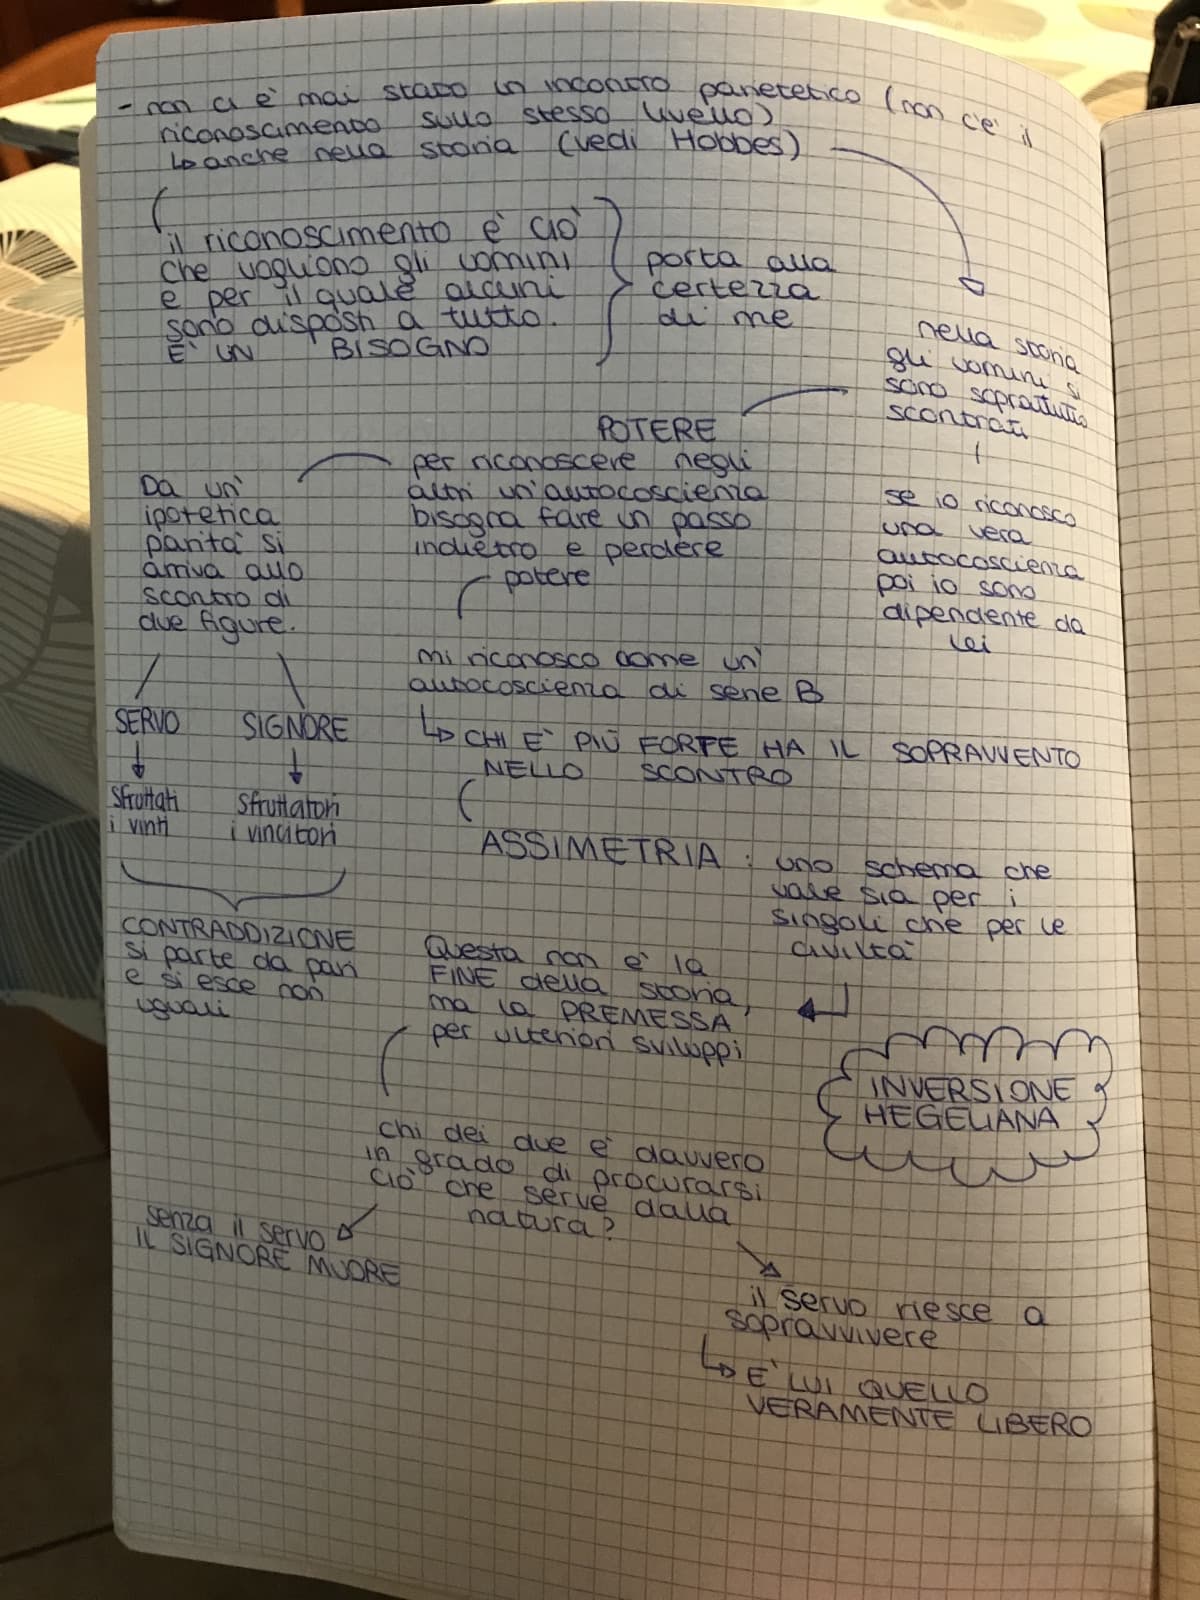 - non ci è mai stato un incontro parietetico (non c'è il
riconoscimento sullo stesso livello)
↳ anche nella storia (vedi Hobbes)
il riconoscimento è ciò
che vogliono gli uomini
e per il quale alcuni
sono disposti a tutto.
È UN BISOGNO
porta alla
certezza
di me
nella storia
gli uomini si
sono soprattutto
scontrati
se io riconosco
una vera
autocoscienza
poi io sono
dipendente da
lei
POTERE
per riconoscere negli
altri un'autocoscienza
bisogna fare un passo
indietro e perdere
potere
mi riconosco come un'
autocoscienza di serie B
↳ CHI È PIÙ FORTE HA IL SOPRAVVENTO
NELLO SCONTRO
ASSIMETRIA : uno schema che
vale sia per i
singoli che per le
civiltà
Da un'
ipotetica
parità si
arriva allo
scontro di
due figure.
SERVO
sfruttati
i vinti
SIGNORE
sfruttatori
i vincitori
CONTRADDIZIONE
si parte da pari
e si esce non
uguali
Questa non è la
FINE della storia,
ma la PREMESSA
per ulteriori sviluppi
INVERSIONE
HEGELIANA
chi dei due è davvero
in grado di procurarsi
ciò che serve dalla
natura?
senza il servo
IL SIGNORE MUORE
il servo riesce a
sopravvivere
↳ È LUI QUELLO
VERAMENTE LIBERO